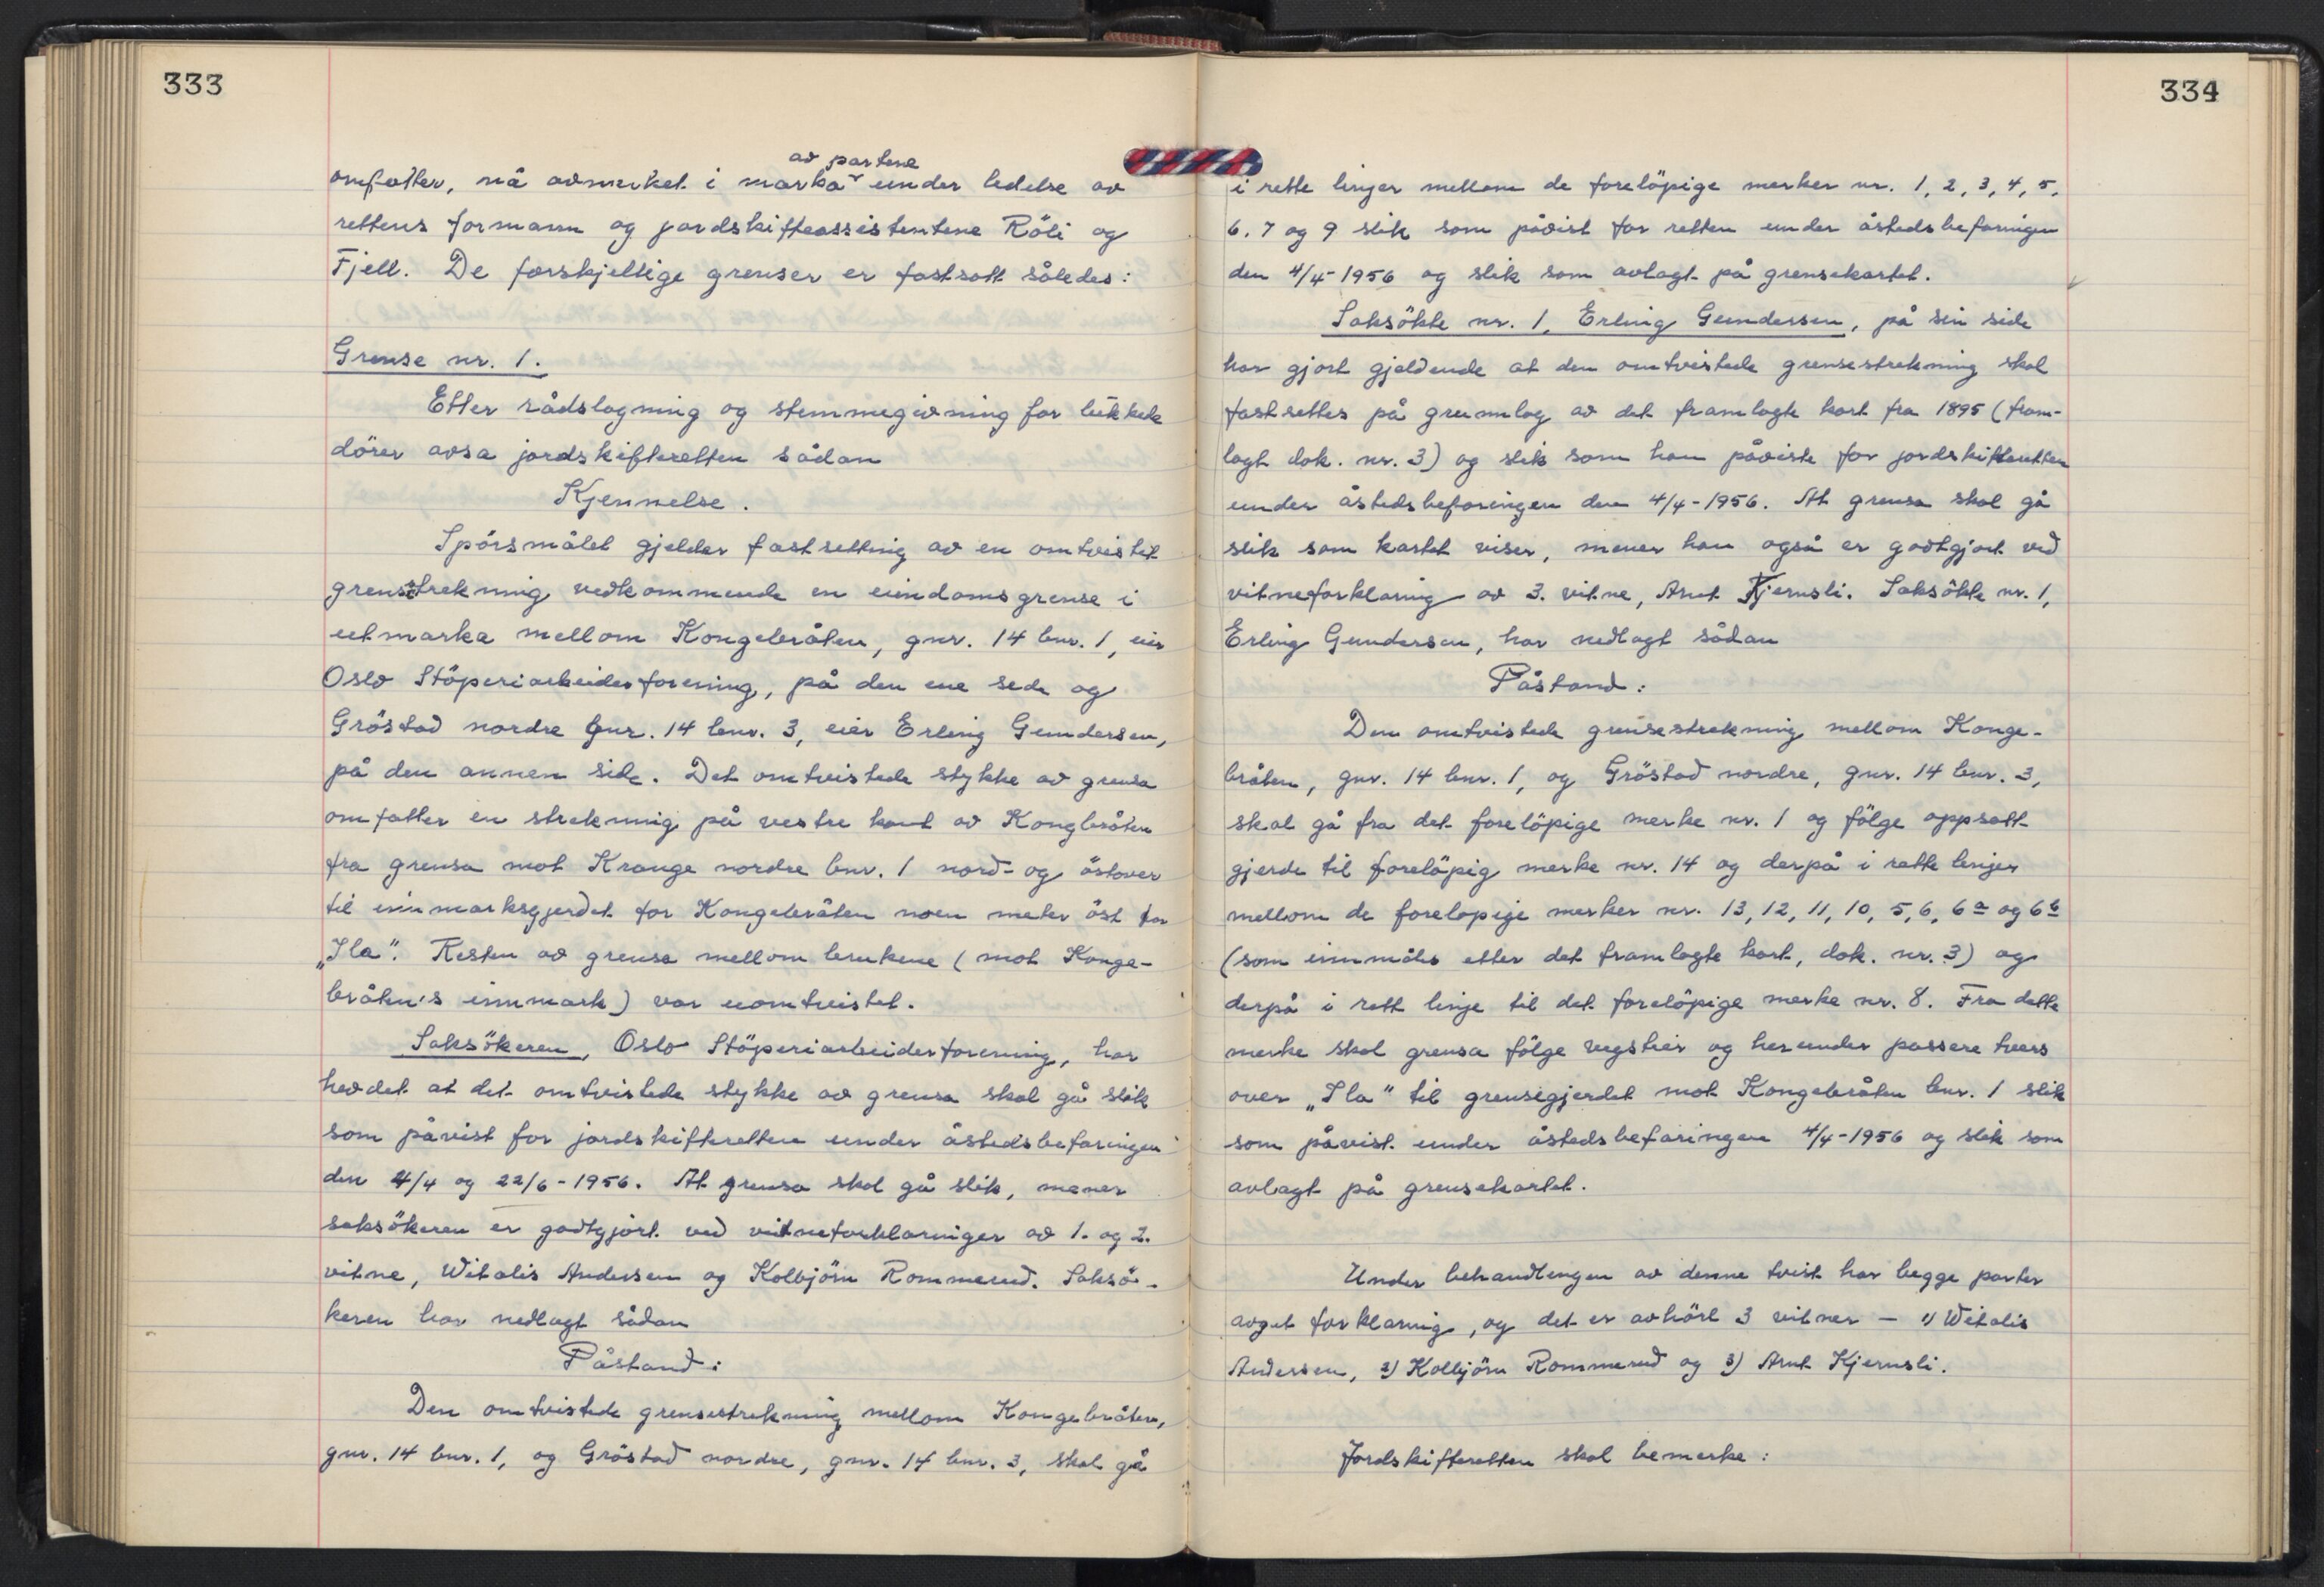 333
av partene
omfatter, nå avmerket i marka under ledelse av
rettens formann og jordskifteassistentene Röli og
Fjell. De forskjellige grenser er fastsatt således:
Grense nr. 1.
Etter rådslagning og stemmegivning for lukkede
dörer avsa jordskifteretten sådan
Kjennelse.
Spörsmålet gjelder fastsetting av en omtvistet
grensestrekning vedkommende en eiendomsgrense i
utmarka mellom Kongebråten, gnr. 14 bnr. 1, eier
Oslo Stöperiarbeiderforening, på den ene side og
Gröstad nordre gnr. 14 bnr. 3, eier Erling Gundersen,
på den annen side. Det omtvistede stykke av grensa
omfatter en strekning på vestre kant av Kongbråten
fra grensa mot Krange nordre bnr. 1 nord- og östover
til innmarksgjerdet for Kongebråten noen meter öst for
„Ila". Resten av grensa mellom brukene (mot Konge-
bråten's innmark) var uomtvistet.
Saksökeren, Oslo Stöperiarbeiderforening, har
hevdet at det omtvistede stykke av grensa skal gå slik
som påvist for jordskifteretten under åstedsbefaringen
den 4/4 og 22/6-1956. At grensa skal gå slik, mener
saksökeren er godtgjort ved vitneforklaringer av 1. og 2.
vitne, Witalis Andersen og Kolbjörn Rommerud. Saksö-
keren har nedlagt sådan
Påstand:
Den omtvistede grensestrekning mellom Kongebråten,
gnr. 14 bnr. 1, og Gröstad nordre, gnr. 14 bnr. 3, skal gå
334
i rette linjer mellom de forelöpige merker nr. 1, 2, 3, 4, 5,
6, 7 og 9 slik som påvist for retten under åstedsbefaringen
den 4/4-1956 og slik som avlagt på grensekartet.
Saksökte nr. 1, Erling Gundersen, på sin side
har gjort gjeldende at den omtvistede grensestrekning skal
fastsettes på grunnlag av det framlagte kart fra 1895 (fram-
lagt dok. nr. 3) og slik som han påviste for jordskifteretten
under åstedsbefaringen den 4/4-1956. At grensa skal gå
slik som kartet viser, mener han også er godtgjort ved
vitneforklaring av 3. vitne, Arnt Kjernsli. Saksökte nr. 1,
Erling Gundersen, har nedlagt sådan
Påstand:
Den omtvistede grensestrekning mellom Konge-
bråten, gnr. 14 bnr. 1, og Gröstad nordre, gnr. 14 bnr. 3,
skal gå fra det forelöpige merke nr. 1 og fölge oppsatt
gjerde til forelöpig merke nr. 14 og derpå i rette linjer
mellom de forelopige merker nr. 13, 12, 11, 10, 5, 6, 6a og 6b
(som innmåles etter det framlagte kart, dok. nr. 3) og
derpå i rett linje til det forelöpige merke nr. 8. Fra dette
merke skal grensa fölge vegstier og herunder passere tvers
over „Ila" til grensegjerdet mot Kongebråten bnr. 1 slik
som påvist under åstedsbefaringen 4/4-1956 og slik som
avlagt på grensekartet.
Under behandlingen av denne tvist har begge parter
avgitt forklaring, og det er avhört 3 vitner — 1) Witalis
Andersen, 2) Kolbjörn Rommerud og 3) Arnt Kjernsli.
Jordskifteretten skal bemerke: